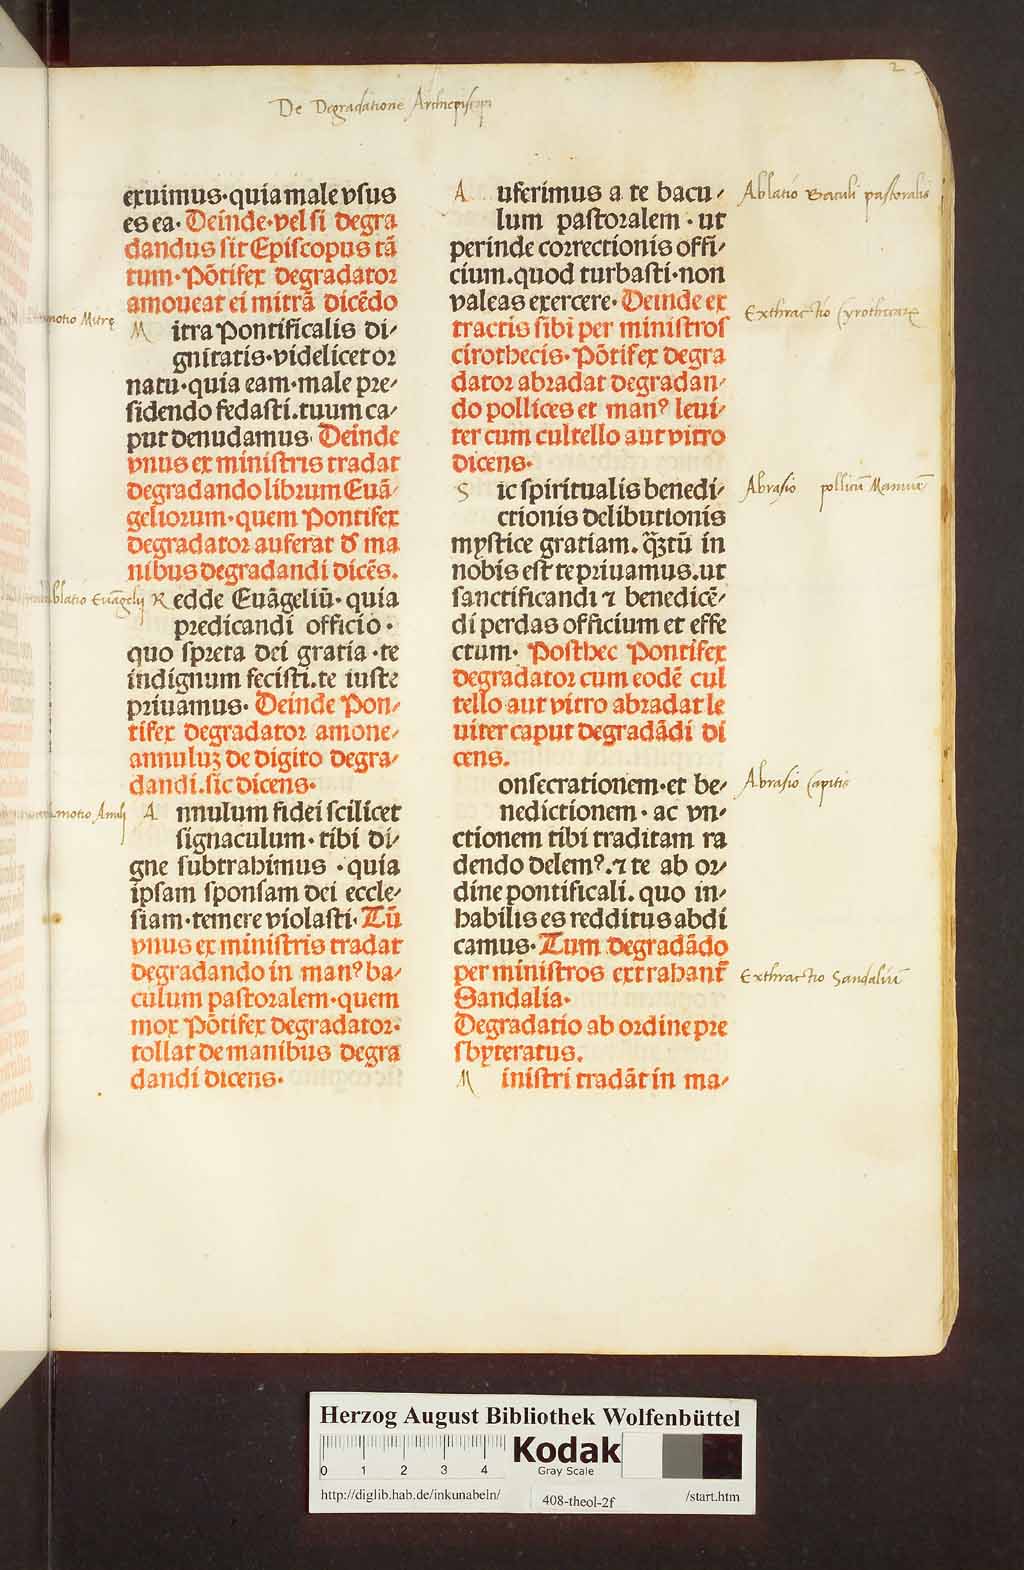 De Degradatione Archiepiscopi
2
exuimus·quia male vsus
es ea· Deinde·vel si degra
dandus sit Episcopus tā
tum·Pōtifex degradator
amoueat ei mitrā dicēdo
motio Mitrę
M itra Pontificalis di-
gnitatis·videlicet or
natu·quia eam·male pre-
sidendo fedasti.tuum ca-
put denudamus· Deinde
vnus ex ministris tradat
degradando librum Euā-
geliorum·quem Pontifex
degradator auferat d' ma
nibus degradandi dicēs.
blatio Euāgelij
R edde Euāgeliū·quia
predicandi officio·
quo spreta dei gratia·te
indignum fecisti.te iuste
priuamus· Deinde Pon-
tifex degradator amone-
annuluʒ de digito degra-
dandi.sic dicens·
motio Anulj
A nnulum fidei scilicet
signaculum·tibi di-
gne subtrahimus ·quia
ipsam sponsam dei eccle-
siam·temere violasti· Tū
vnus ex ministris tradat
degradando in manꝰ ba-
culum pastoralem·quem
mox Pōtifex degradator·
tollat de manibus degra
dandi dicens·
A uferimus a te bacu-
lum pastoralem·ut
perinde correctionis offi-
cium.quod turbasti·non
valeas exercere· Deinde ex
tractis sibi per ministros
cirothecis·Pōtifex degra
dator abradat degradan-
do pollices et manꝰ leui-
ter cum cultello aut vitro
dicens·
S ic spiritualis benedi-
ctionis delibutionis
mystice gratiam. q̄ʒtū in
nobis est te priuamus.ut
sanctificandi ⁊ benedicē-
di perdas officium et effe
ctum· Posthec Pontifex
degradator cum eodē cul
tello aut vitro abradat le
uiter caput degradādi di
cens.
onsecrationem·et be-
nedictionem·ac vn-
ctionem tibi traditam ra
dendo delemꝰ.⁊ te ab or-
dine pontificali. quo in-
habilis es redditus abdi
camus· Tum degradādo
per ministros extrahant᷑
Sandalia·
Degradatio ab ordine pre
sbyteratus.
M inistri tradāt in ma-
Ablatio Baculi pastoralis
Exthractio Cyrothecarꝫ
Abrasio pollicū Manuū
Abrasio Capitis
Exthractio Sandaliū
Herzog August Bibliothek Wolfenbüttel
0 1 2 3 4
Kodak
Gray Scale
http://diglib.hab.de/inkunabeln/
408-theol-2f
/start.htm